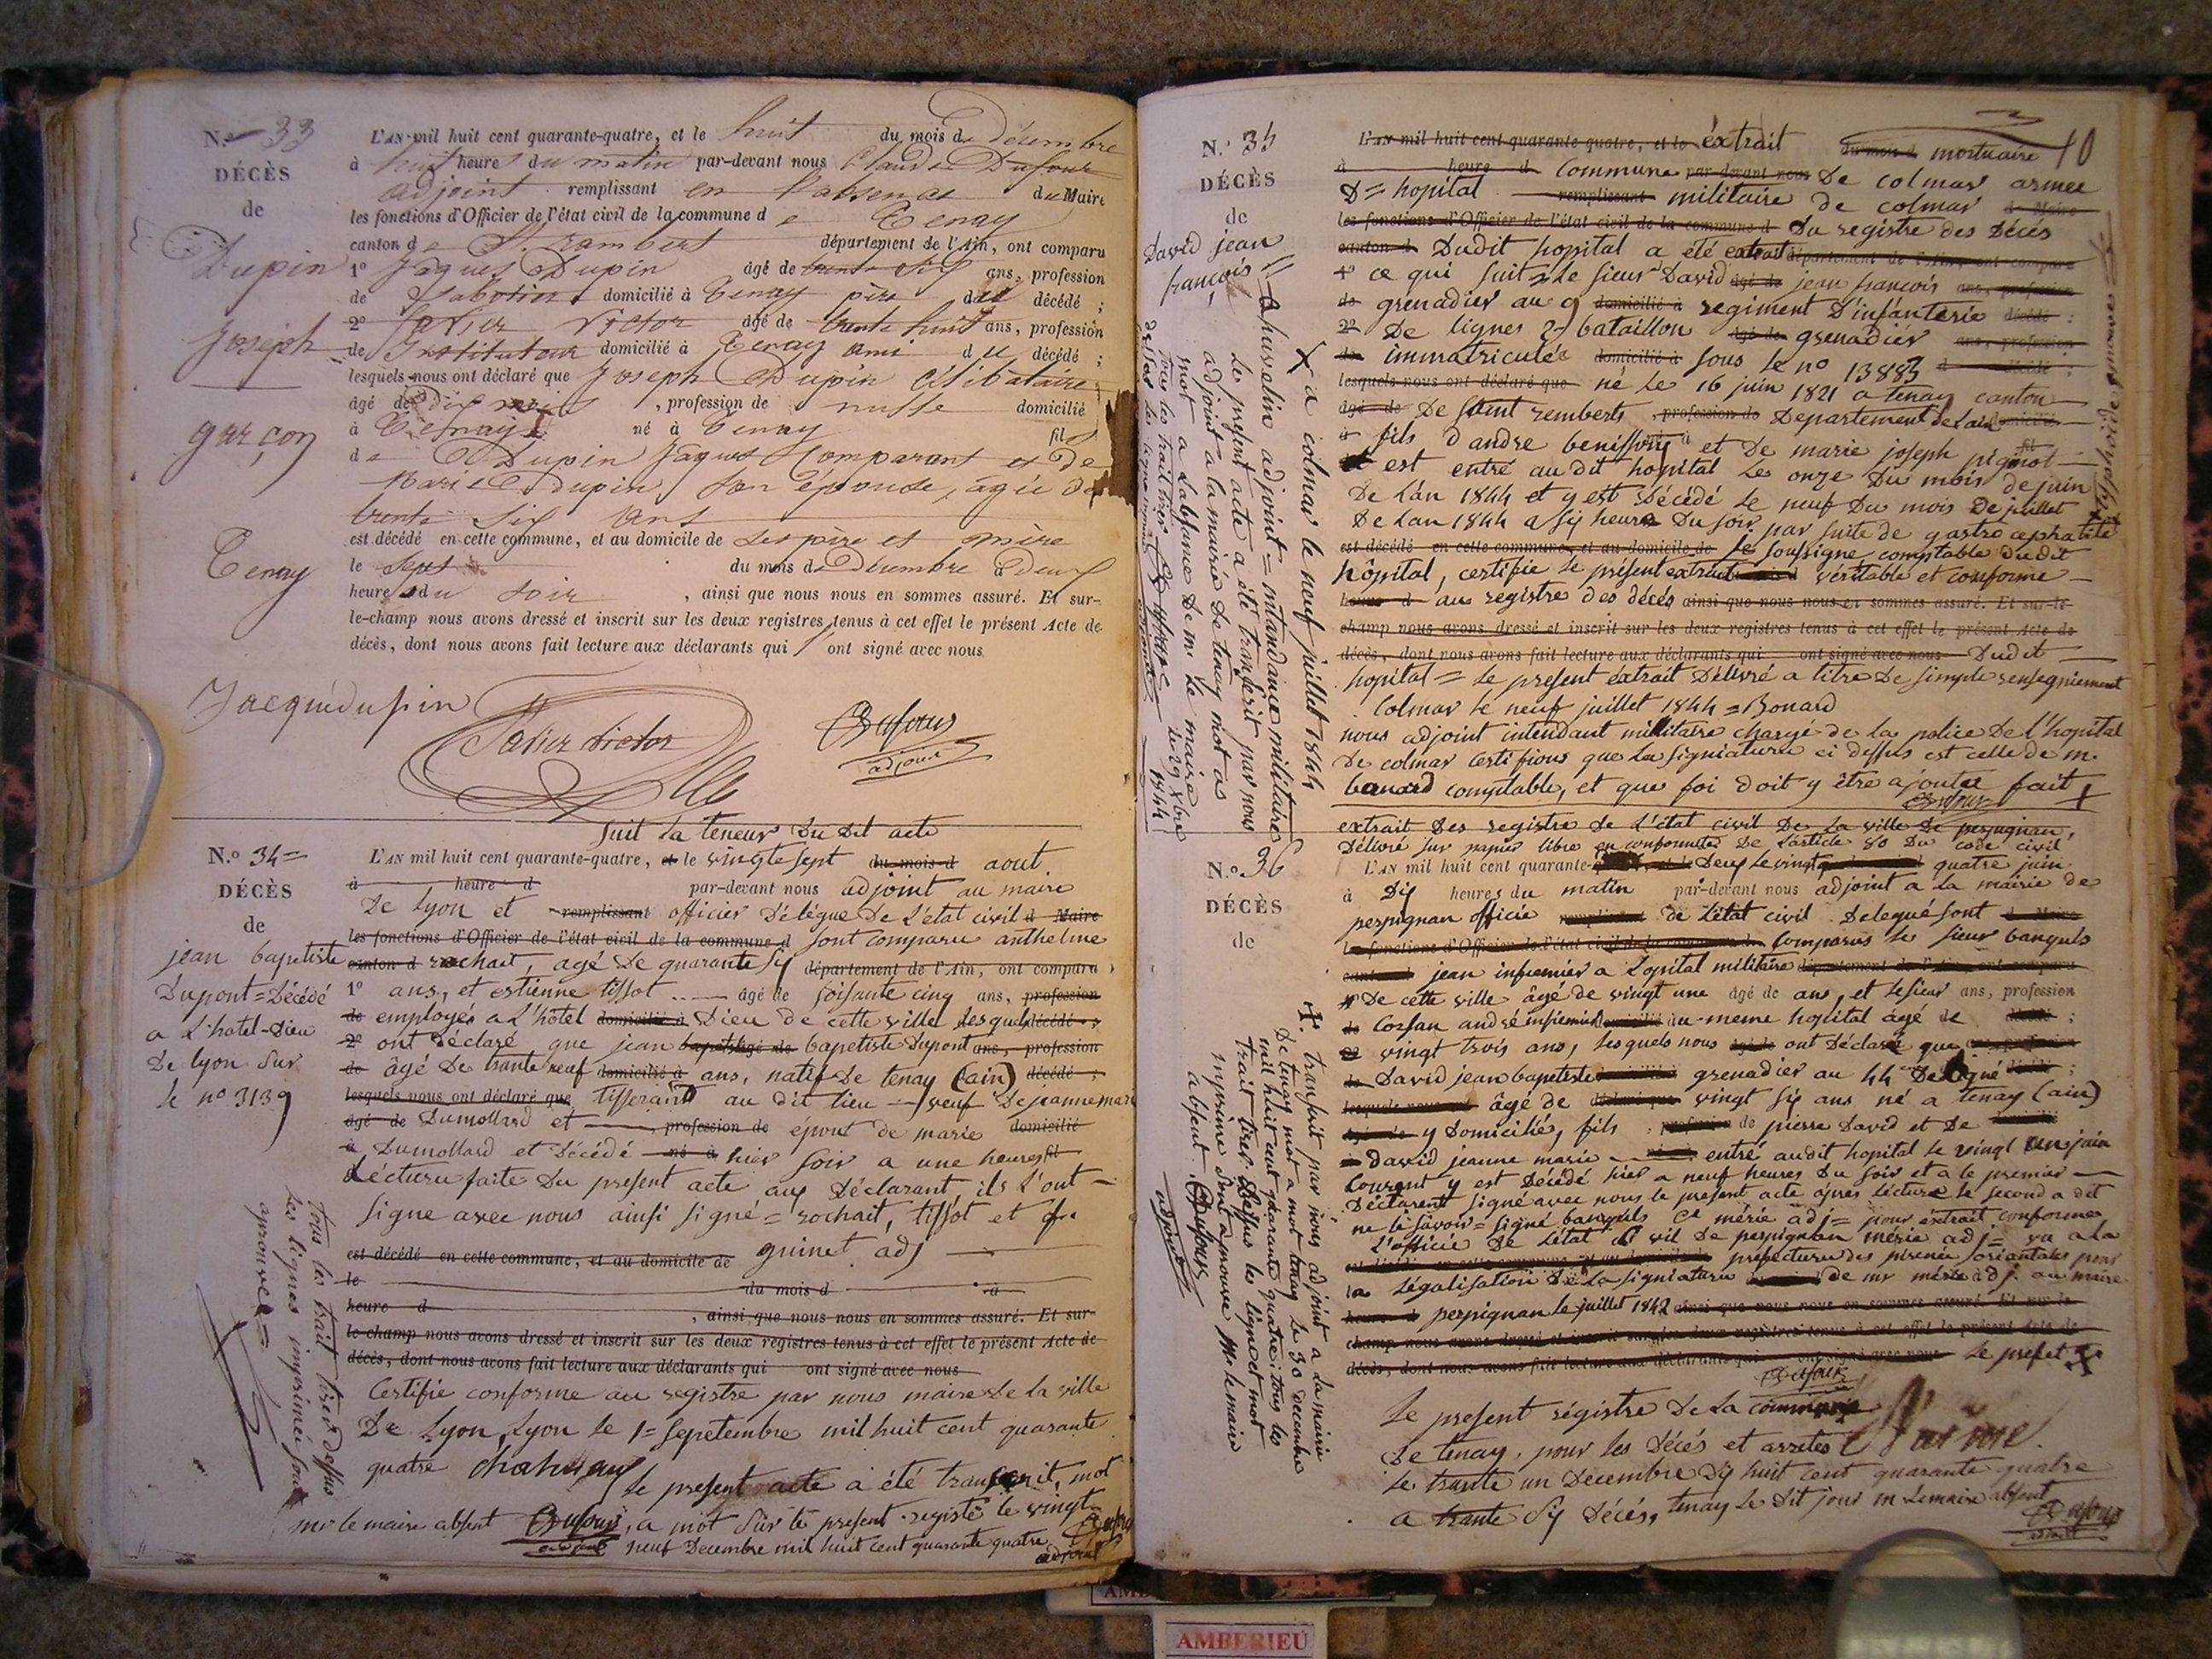 N.º 33
DÉCÈS
de
Dupin
Joseph
garçon
Tenay
L'AN mil huit cent quarante-quatre, et le huit du mois de décembre
à huit heures du matin par-devant nous Claude Dufour
adjoint remplissant en l'absence du Maire
les fonctions d'Officier de l'état civil de la commune de Tenay
canton de St. rambert département de l'Ain, ont comparu
1º Jaques Dupin âgé de trente six ans, profession
de Sabotier domicilié à Tenay père du décédé ;
2º Savier Victor âgé de trente huit ans, profession
de Instituteur domicilié à Tenay ami du décédé ;
lesquels nous ont déclaré que Joseph Dupin Célibataire
âgé de dix mois, profession de nulle domicilié
à Tenay né à Tenay fils
de Dupin Jaques Comparant et de
Marie dupin son épouse, agée de
trente six ans
est décédé en cette commune, et au domicile de ses père et mère
le sept du mois de Décembre à deux
heures du soir, ainsi que nous nous en sommes assuré. Et sur-
le-champ nous avons dressé et inscrit sur les deux registres tenus à cet effet le présent Acte de
décès, dont nous avons fait lecture aux déclarants qui ont signé avec nous
Jacquedupin
Savier victor
Dufour
adjoint
Suit la teneur Du Dit acte
N.º 34=
DÉCÈS
de
jean baptiste
Dupont=Décédé
a L'hotel-Dieu
De lyon Sur
le nº 3139
L'AN mil huit cent quarante-quatre, et le vingt sept du mois d aout
à heure d par-devant nous adjoint au maire
De Lyon et remplissant officier Délégue De L'état civil d Maire
les fonctions d'Officier de l'état civil de la commune d sont comparu anthelme
canton d rochait, agé De quarante six département de l'Ain, ont comparu
1º ans, et estienne tissot âgé de soisante cinq ans, profession
de employés a L'hôtel domicilié à Dieu De cette ville lesquels décédé ;
2º ont déclaré que jean âgé de bapetiste Dupont ans, profession
de âgé De trante neuf domicilié à ans, natif De tenay (ain) décédé ;
lesquels nous ont déclaré que tisserant au dit lieu — veuf De jeanne mari
âgé de Dumollard et profession de epout de marie domicilié
à Dumollard et Décédé né à hier soir a une heures fil
Lécture faite Du present acte aux Déclarant ils L'ont
signe avec nous ainsi signé = rochait, tissot et
est décédé en cette commune, et au domicile de guinet adj
le du mois d à
heure d, ainsi que nous nous en sommes assuré. Et sur-
le-champ nous avons dressé et inscrit sur les deux registres tenus à cet effet le présent Acte de
décès, dont nous avons fait lecture aux déclarants qui ont signé avec nous
Certifie conforme au registre par nous maire De la ville
De Lyon, Lyon le 1= sepetembre mil huit cent quarante
quatre
le present acte a été transcrit, mot
mr le maire absent Dufour, a mot sur le present registe le vingt
adjoint neuf Decembre mil huit cent quarante quatre Dufour
adjoint
tous les trait tirés dessus
les lignes imprimée sont
aprouvée=
N.º 35
DÉCÈS
de
David jean
françois
10
L'AN mil huit cent quarante-quatre, et le éxtrait du mois d mortuaire
à heure d Commune par-devant nous De colmar armee
D= hopital remplissant militaire de colmar d Maire
les fonctions d'Officier de l'état civil de la commune d Du registre des Décès
canton d Dudit hopital a été extrait département de l'Ain, ont comparu
1º ce qui suit le sieur David âgé de jean françois ans, profession
de grenadier au 9 domicilié à regiment D'infanterie décédé ;
2º De lignes 2= bataillon âgé de grenadier ans, profession
de immatriculée domicilié à sous le nº 13883 d décédé ;
lesquels nous ont déclaré que né le 16 juin 1821 a tenay canton
âgé de De saint remberts, profession de Departement de Lain domicilié
à fils d'andre benisson né à et De marie joseph pignot fil
est entré au dit hopital Le onze Du mois de juin
De L'an 1844 et y est Décédé le neuf Du mois De juillet
De L'an 1844 a six heure Du soir par suite de gastro cephalité
est décédé en cette commune, et au domicile de je soussigne comptable Dudit
hôpital, certifie le présent extrait véritable et conforme
heure d au registre des décés ainsi que nous nous en sommes assuré. Et sur-le-
champ nous avons dressé et inscrit sur les deux registres tenus à cet effet le présent Acte de
décès, dont nous avons fait lecture aux déclarants qui ont signé avec nous Dudit
hopital = Le present éxtrait Délivré a titre De simple renseigniement
Colmar le neuf juillet 1844 = Bonard
nous adjoint intendant millitaire chargé de la police De l'hopital
De colmar Certifions que la signiature ci dessus est celle de m.
bonard comptable, et que foi doit y être ajoutée fait
Dufour
typhoide aprouvé
a colmar le neuf juillet 1844
adjoint = intandance militaire
Le present acte a été transcrit par nous
adjoint a la mairie De tenay mot as
mot a Labsence De mr Le maire
tous les trait tirés Dufour Le 29 Xbre
adjoint 1844
extrait Des registre De L'état civil De La ville De perpignan,
Délivré sur papier libre en conformité De L'article 80 Du code civil
N.º 36
DÉCÈS
de
L'AN mil huit cent quarante- et le Deux Le vingt quatre juin
à Dix heures du matin par-devant nous adjoint a La mairie de
perpignan officie remplissant De L'état civil Delegué sont d Maire
les fonctions d'Officier de l'état civil de la commune d Comparus le sieur banquls
canton d jean infiremier a L'opital militaire département de l'Ain, ont comparu
1º De cette ville âgé de vingt une âgé de ans, et le sieur ans, profession
de Cossan andré infiremier domicilié au meme hopital âgé de décédé ;
2º vingt trois ans, Lesquels nous âgé de ont Déclaré que
de David jean bapetiste grenadier au 44 De ligne
lesquels nous ont âgé de déclaré que vingt six ans né a tenay (ain)
âgé de y Domicilié, fils, profession de pierre David et De
à David jeanne marie — né à entré audit hopital le vingt un juin
Courent y est Décédé hier a neuf heures Du soir et a le premier
Déclarent signé avec nous le present acte après lécture le second a dit
ne le savoir = signé banquls mérie adj= pour éxtrait conforme
L'officie De L'état ci vil De perpignan mérie adj= vu a la
préfecture des pirenée oriantales pour
la Légalisation De La signiature de mr mérie adj. au maire
heure d perpignan le juillet 1842 ainsi que nous nous en sommes assuré. Et sur-le-
champ nous avons dressé et inscrit sur les deux registres tenus à cet effet le présent Acte de
décès, dont nous avons fait lecture aux déclarants qui ont signé avec nous Le prefet
Dufour
transcrit par nous adjoint a La mairie
De tenay mot a mot tenay Le 30 decembre
mil huit cent quarante quatre tous les
trait tirés Dessus les lignes et mot
imprimé sont aprouve Mr le maire
absent Dufour
adjoint
Le present régistre De La commune
De tenay, pour les Décés et arretés
Le trante un Decembre dix huit cent quarante quatre
a trante six Décés, tenay Le dit jour m Lemaire absent
Dufour
adjoint
AMBERIEU